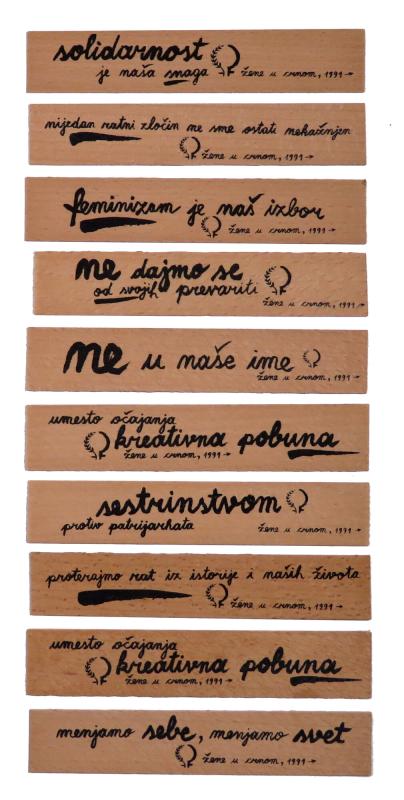 solidarnost
je naša snaga žene u crnom, 1991→
nijedan ratni zločin ne sme ostati nekažnjen
žene u crnom, 1991→
feminizam je naš izbor
žene u crnom, 1991→
ne dajmo se
od svojih prevariti
žene u crnom, 1991→
ne u naše ime
žene u crnom, 1991→
umesto očajanja
kreativna pobuna
žene u crnom, 1991→
sestrinstvom
protiv patrijarhata žene u crnom, 1991→
proterajmo rat iz istorije i naših života
žene u crnom, 1991→
umesto očajanja
kreativna pobuna
žene u crnom, 1991→
menjamo sebe, menjamo svet
žene u crnom, 1991→